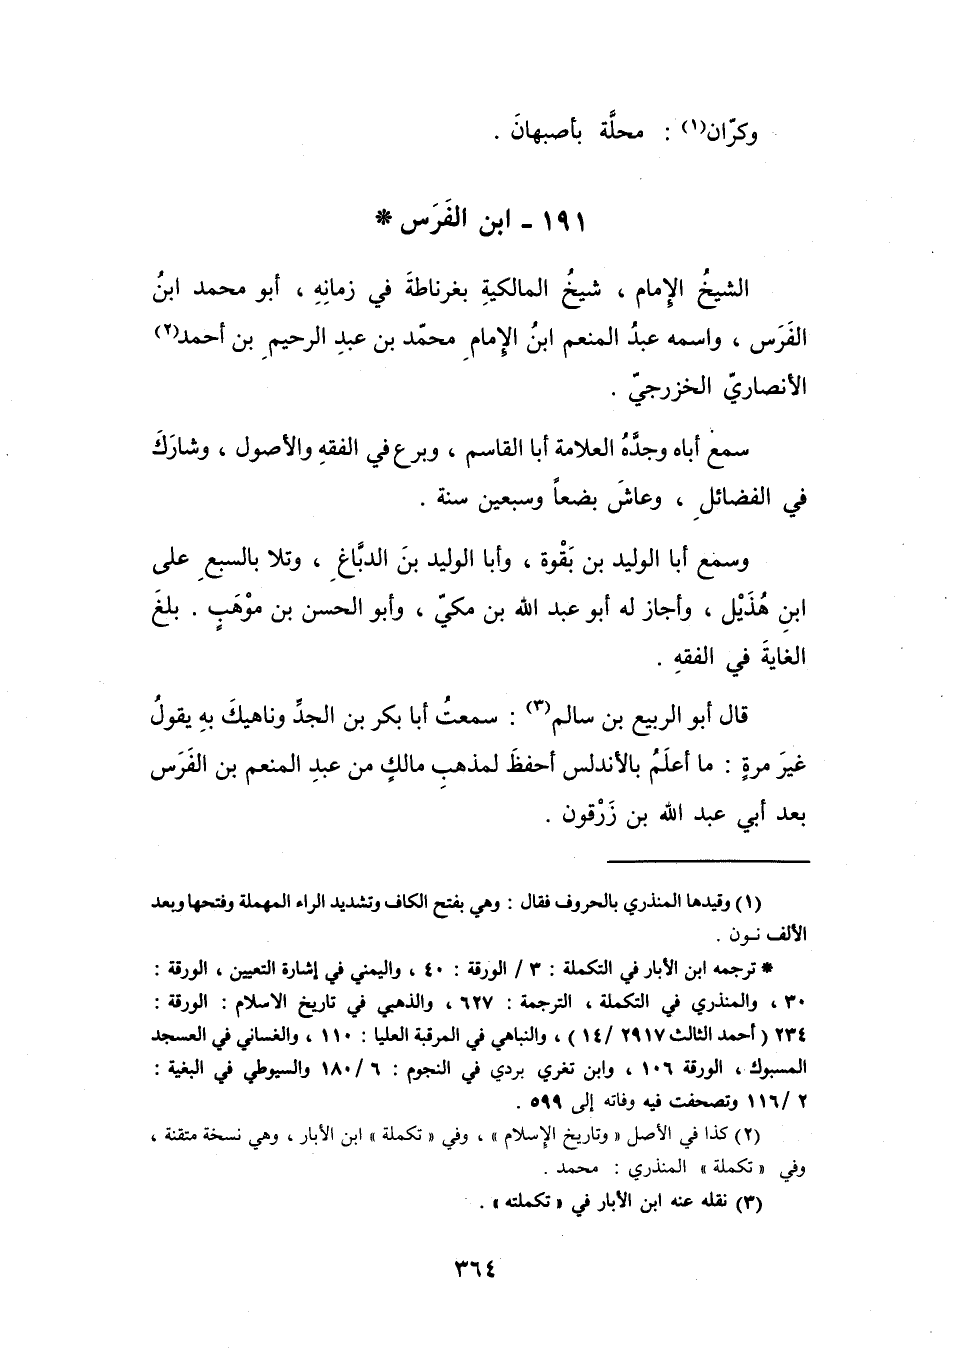 وكرّان(١) : محلَّة بأصبهانَ .
١٩١ ـ ابن الفَرَس *
الشيخُ الإِمام ، شيخُ المالكيةِ بغرناطةَ في زمانِهِ ، أبو محمد ابنُ
الفَرَس ، واسمه عبدُ المنعم ابنُ الإِمامِ محمّد بن عبدِ الرحيمِ بن أحمد(٢)
الأنصاريّ الخزرجيّ .
سمع أباه وجدَّهُ العلامة أبا القاسم ، وبرع في الفقهِ والأصول ، وشارَكَ
في الفضائلِ ، وعاشَ بضعاً وسبعين سنة .
وسمع أبا الوليد بن بَقْوة ، وأبا الوليد بنَ الدبَّاغِ ، وتلا بالسبعِ على
ابنِ هُذَيْل ، وأجاز له أبو عبد الله بن مكيّ ، وأبو الحسن بن موْهَبٍ . بلغَ
الغايةَ في الفقهِ .
قال أبو الربيع بن سالم(٣) : سمعتُ أبا بكر بن الجدِّ وناهيكَ بهِ يقولُ
غيرَ مرةٍ : ما أعلَمُ بالأندلس أحفظَ لمذهبِ مالكٍ من عبدِ المنعم بن الفَرَس
بعد أبي عبد الله بن زَرْقون .
(١) وقيدها المنذري بالحروف فقال : وهي بفتح الكاف وتشديد الراء المهملة وفتحها وبعد
الألف نون .
* ترجمه ابن الأبار في التكملة : ٣ / الورقة : ٤٠ ، واليمني في إشارة التعيين ، الورقة :
٣٠ ، والمنذري في التكملة ، الترجمة : ٦٢٧ ، والذهبي في تاريخ الاسلام : الورقة :
٢٣٤ ( أحمد الثالث ٢٩١٧ /١٤ ) ، والنباهي في المرقبة العليا : ١١٠ ، والغساني في العسجد
المسبوك ، الورقة ١٠٦ ، وابن تغري بردي في النجوم : ٦ /١٨٠ والسيوطي في البغية :
٢ /١١٦ وتصحفت فيه وفاته إلى ٥٩٩ .
(٢) كذا في الأصل « وتاريخ الإِسلام » ، وفي « تكملة » ابن الأبار ، وهي نسخة متقنة ،
وفي « تكملة » المنذري : محمد .
(٣) نقله عنه ابن الأبار في « تكملته » .
٣٦٤